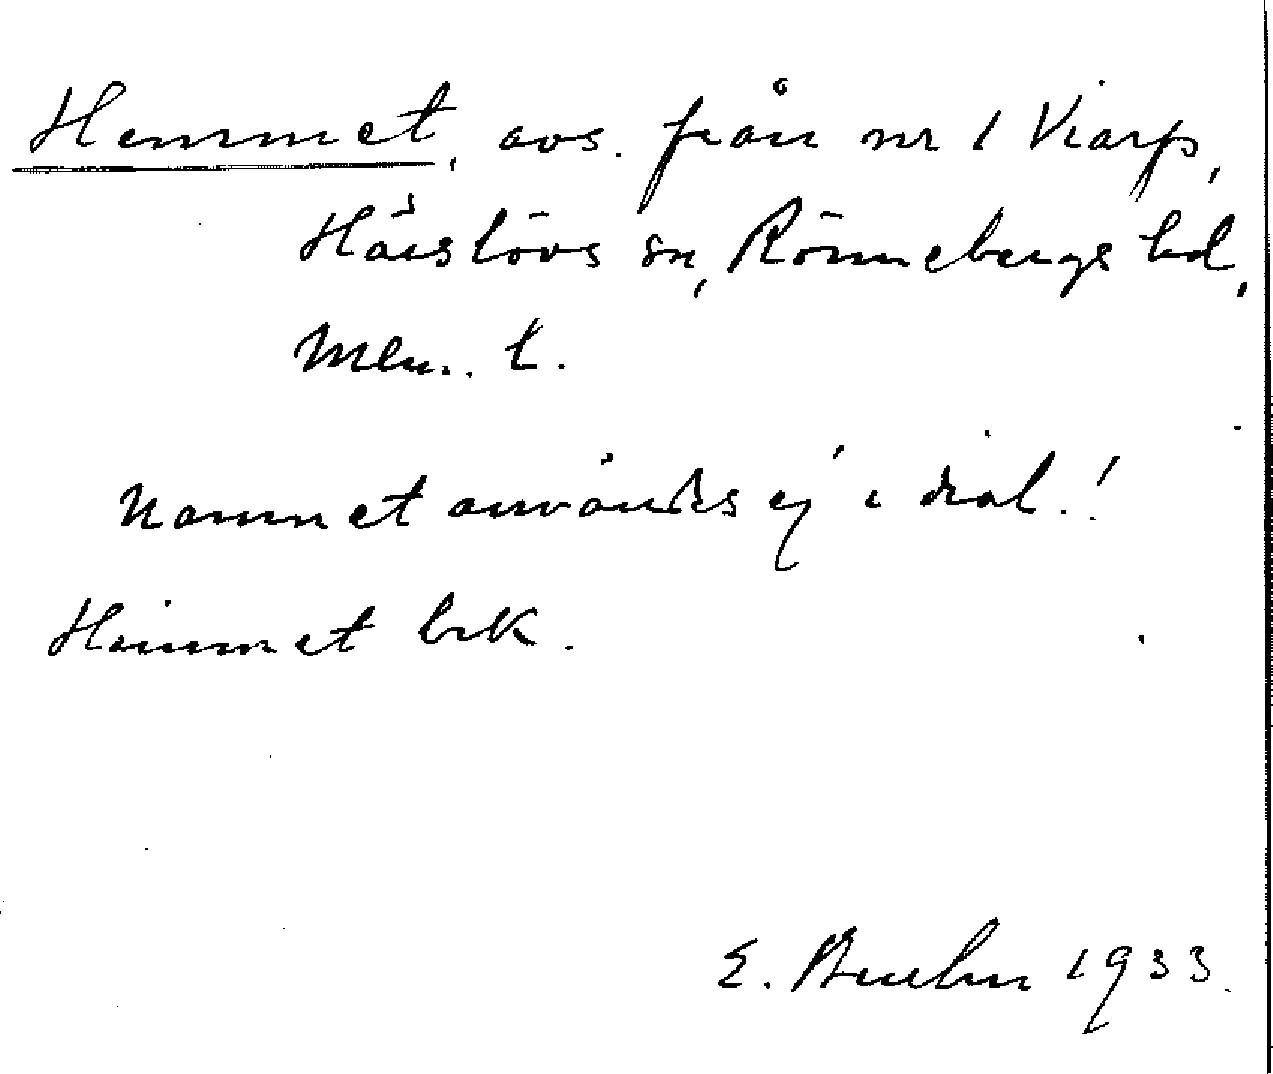 Hemmet, avs. från nr 1 Viarp,
Härslövs sn, Rönnebergs hd,
Mlm. l.
Namnet användes ej i dial.!
Hemmet brk.
E. 1933.